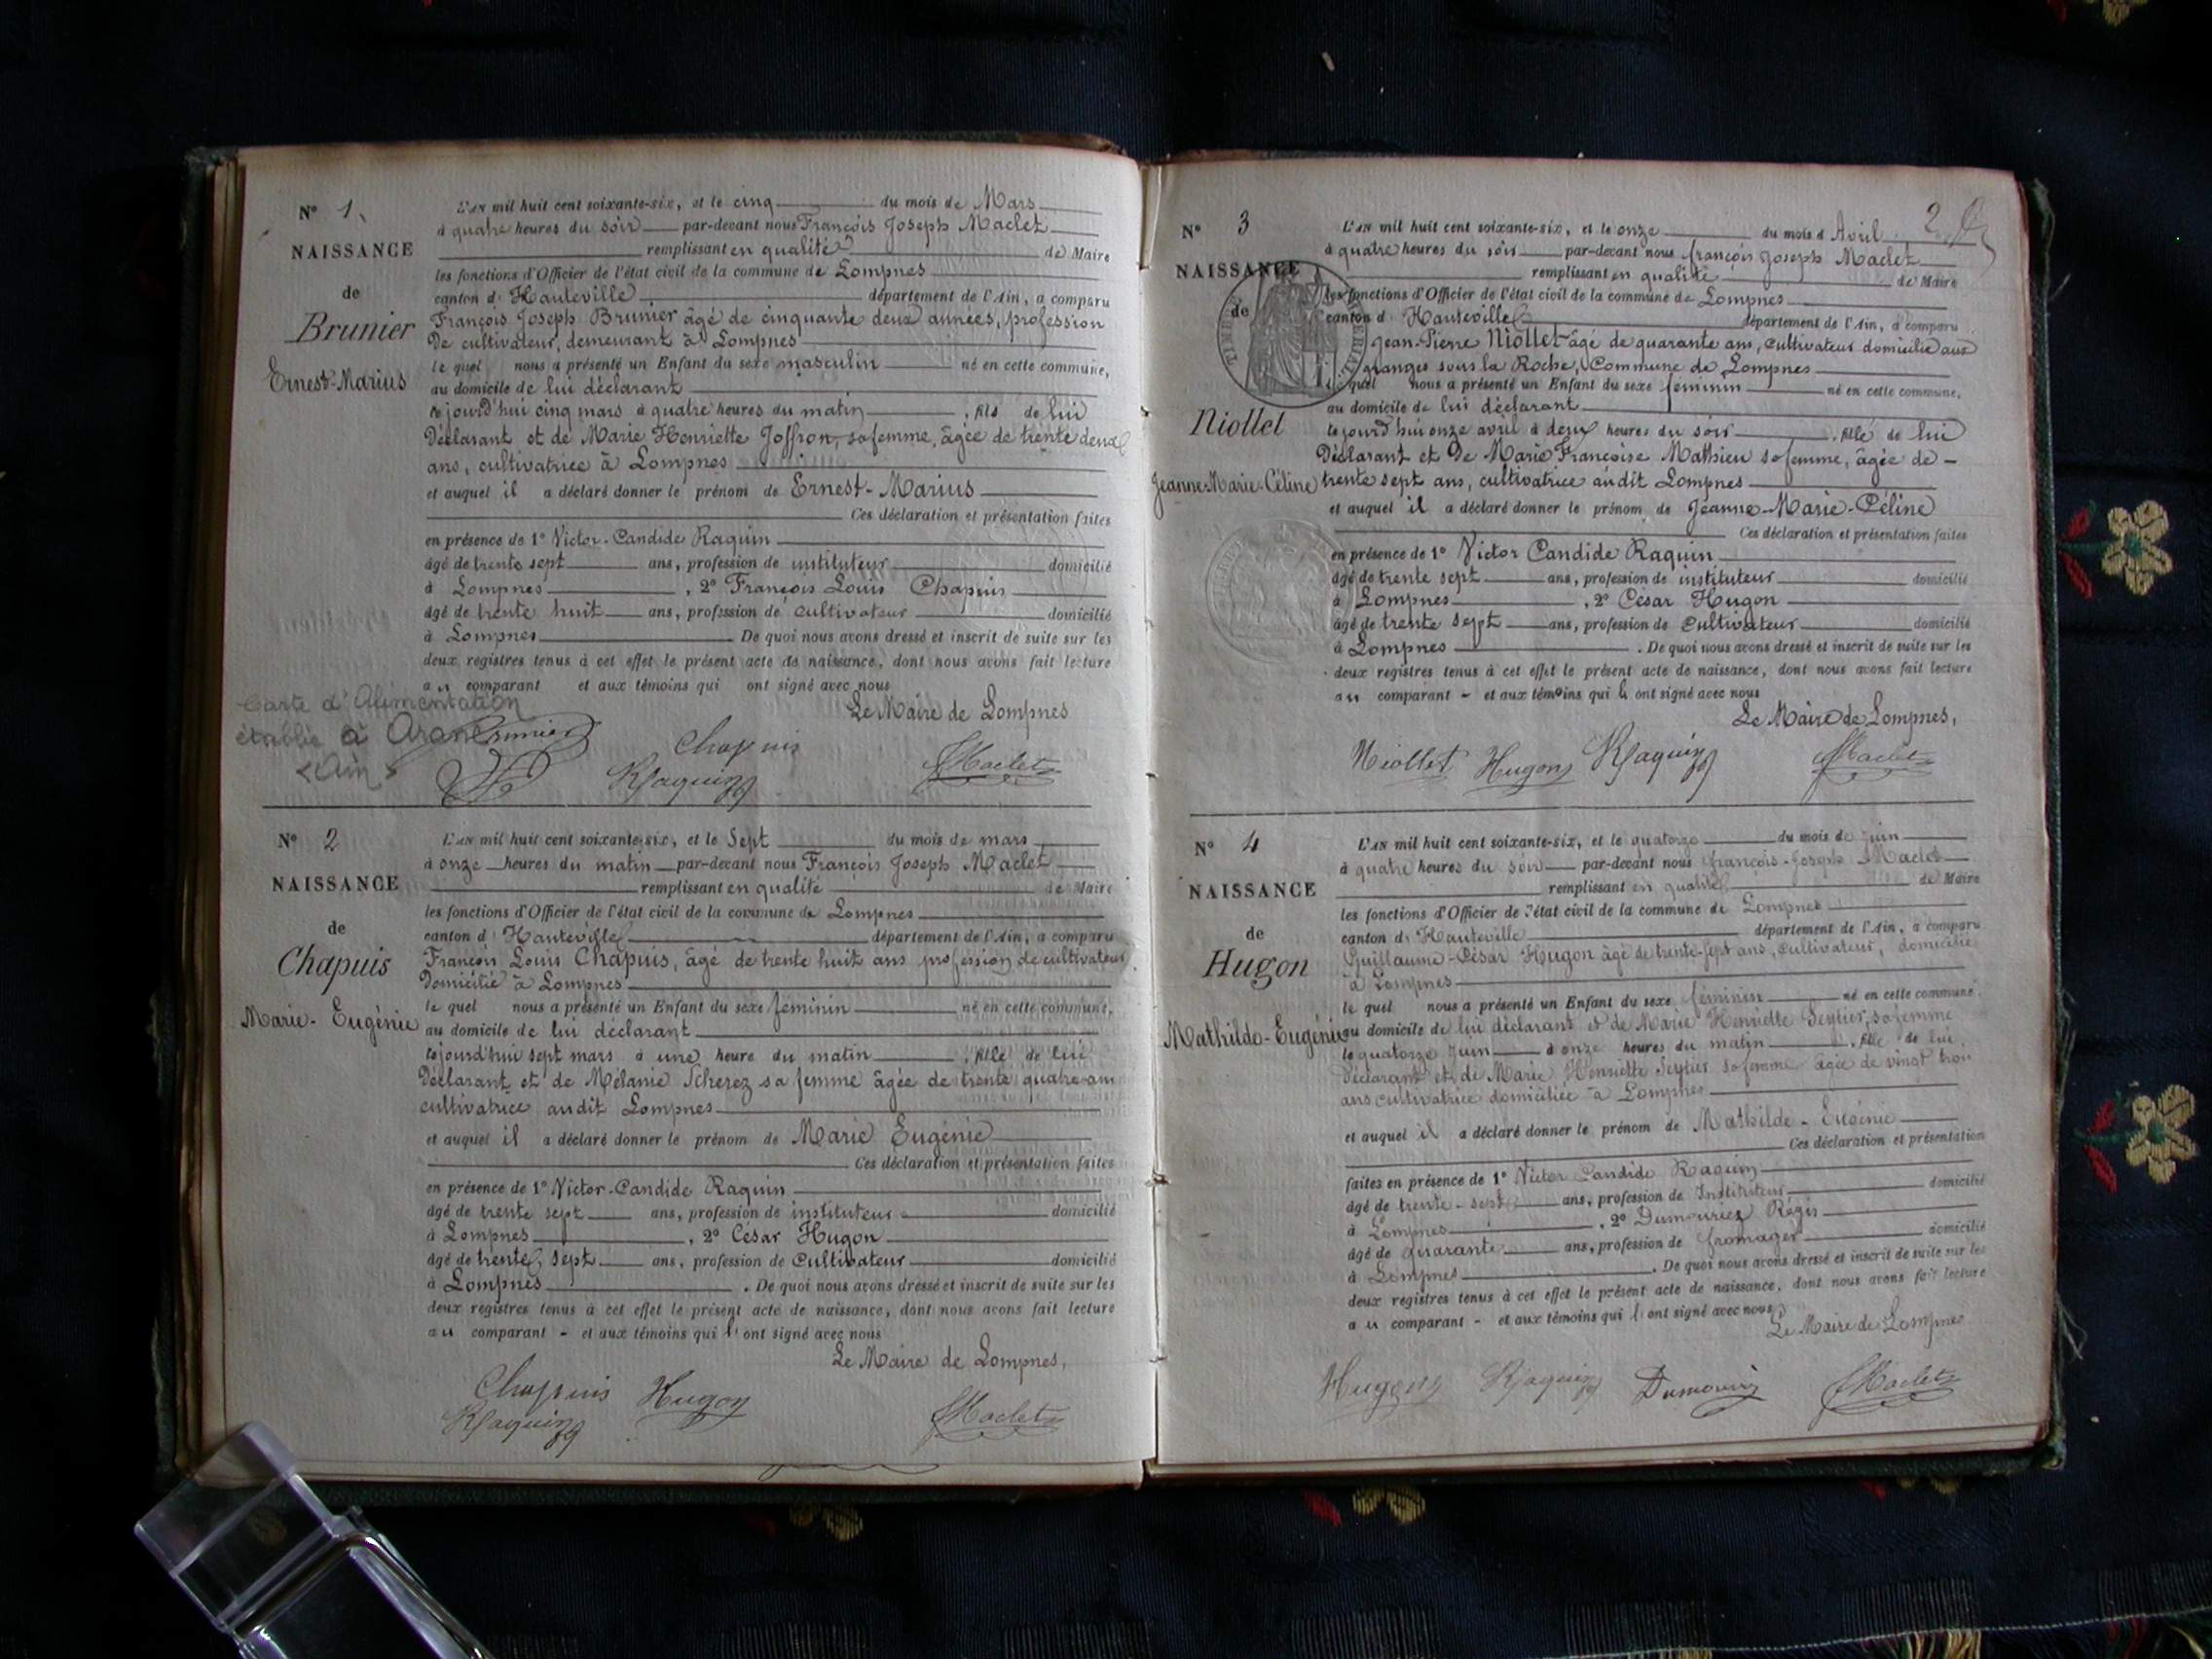 N° 1.
NAISSANCE
de
Brunier
Ernest-Marius
L'AN mil huit cent soixante-six, et le cinq du mois de Mars
à quatre heures du soir par-devant nous François Joseph Maclet
remplissant en qualité de Maire
les fonctions d'Officier de l'état civil de la commune de Lompnes
canton d' Hauteville département de l'Ain, a comparu
François Joseph Brunier âgé de cinquante deux années, profession
De cultivateur, demeurant à Lompnes
le quel nous a présenté un Enfant du sexe masculin né en cette commune,
au domicile de lui déclarant
cejourd'hui cinq mars à quatre heures du matin, fils de lui
Déclarant et de Marie Henriette Joffron, sa femme, âgée de trente deux
ans, cultivatrice à Lompnes
et auquel il a déclaré donner le prénom de Ernest-Marius
Ces déclaration et présentation faites
en présence de 1° Victor-Candide Raquin
âgé de trente sept ans, profession de instituteur domicilié
à Lompnes, 2° François Louis Chapuis
âgé de trente huit ans, profession de cultivateur domicilié
à Lompnes. De quoi nous avons dressé et inscrit de suite sur les
deux registres tenus à cet effet le présent acte de naissance, dont nous avons fait lecture
au comparant et aux témoins qui ont signé avec nous
Le Maire de Lompnes
Carte d'Alimentation
établie à Aran
<Ain>
Brunier Chapuis
Raquin Maclet
N° 2
NAISSANCE
de
Chapuis
Marie-Eugénie
L'AN mil huit cent soixante-six, et le Sept du mois de mars
à onze heures du matin par-devant nous François Joseph Maclet
remplissant en qualité de Maire
les fonctions d'Officier de l'état civil de la commune de Lompnes
canton d' Hauteville département de l'Ain, a comparu
François Louis Chapuis, âgé de trente huit ans profession de cultivateur
Domicilié à Lompnes
le quel nous a présenté un Enfant du sexe féminin né en cette commune,
au domicile de lui déclarant
cejourd'hui sept mars à une heure du matin, fille de lui
Déclarant et de Mélanie Scherez sa femme âgée de trente quatre ans
cultivatrice audit Lompnes
et auquel il a déclaré donner le prénom de Marie Eugénie
Ces déclaration et présentation faites
en présence de 1° Victor-Candide Raquin
âgé de trente sept ans, profession de instituteur domicilié
à Lompnes, 2° César Hugon
âgé de trente, sept ans, profession de Cultivateur domicilié
à Lompnes. De quoi nous avons dressé et inscrit de suite sur les
deux registres tenus à cet effet le présent acte de naissance, dont nous avons fait lecture
au comparant - et aux témoins qui l' ont signé avec nous
Le Maire de Lompnes,
Chapuis Hugon
Raquin Maclet
2
N° 3
NAISSANCE
de
Niollet
Jeanne-Marie-Céline
L'AN mil huit cent soixante-six, et le onze du mois d'Avril
à quatre heures du soir par-devant nous françois Joseph Maclet
remplissant en qualité de Maire
les fonctions d'Officier de l'état civil de la commune de Lompnes
canton d' Hauteville département de l'Ain, a comparu
Jean-Pierre Niollet âgé de quarante ans, cultivateur domicilié aux
granges sous la Roche, Commune de Lompnes
le quel nous a présenté un Enfant du sexe féminin né en cette commune,
au domicile de lui déclarant
cejourd'hui onze avril à deux heures du soir, fille de lui
Déclarant et de Marie Françoise Mathieu sa femme, âgée de -
trente sept ans, cultivatrice audit Lompnes
et auquel il a déclaré donner le prénom de Jeanne-Marie-Céline
Ces déclaration et présentation faites
en présence de 1° Victor Candide Raquin
âgé de trente sept ans, profession de instituteur domicilié
à Lompnes, 2° César Hugon
âgé de trente sept ans, profession de Cultivateur domicilié
à Lompnes. De quoi nous avons dressé et inscrit de suite sur les
deux registres tenus à cet effet le présent acte de naissance, dont nous avons fait lecture
au comparant - et aux témoins qui l' ont signé avec nous
Le Maire de Lompnes,
Niollet Hugon Raquin Maclet
N° 4
NAISSANCE
de
Hugon
Mathilde-Eugénie
L'AN mil huit cent soixante-six, et le quatorze du mois de juin
à quatre heures du soir par-devant nous françois-Joseph Maclet
remplissant en qualité de Maire
les fonctions d'Officier de l'état civil de la commune de Lompnes
canton d' Hauteville département de l'Ain, a comparu
Guillaume-César Hugon âgé de trente-sept ans, Cultivateur, domicilié
à Lompnes
le quel nous a présenté un Enfant du sexe féminin né en cette commune
au domicile de lui déclarant et de Marie Henriette Seytier, sa femme
le quatorze Juin à onze heures du matin, fille de lui
Déclarant et de Marie Henriette Seytier sa femme âgée de vingt trois
ans cultivatrice domiciliée à Lompnes
et auquel il a déclaré donner le prénom de Mathilde-Eugénie
Ces déclaration et présentation
faites en présence de 1° Victor Candide Raquin
âgé de trente-sept ans, profession de Instituteur domicilié
à Lompnes, 2° Dumouriez Régis
âgé de quarante ans, profession de fromager domicilié
à Lompnes. De quoi nous avons dressé et inscrit de suite sur les
deux registres tenus à cet effet le présent acte de naissance, dont nous avons fait lecture
au comparant - et aux témoins qui l' ont signé avec nous
Le Maire de Lompnes
Hugon Raquin Dumouriez Maclet